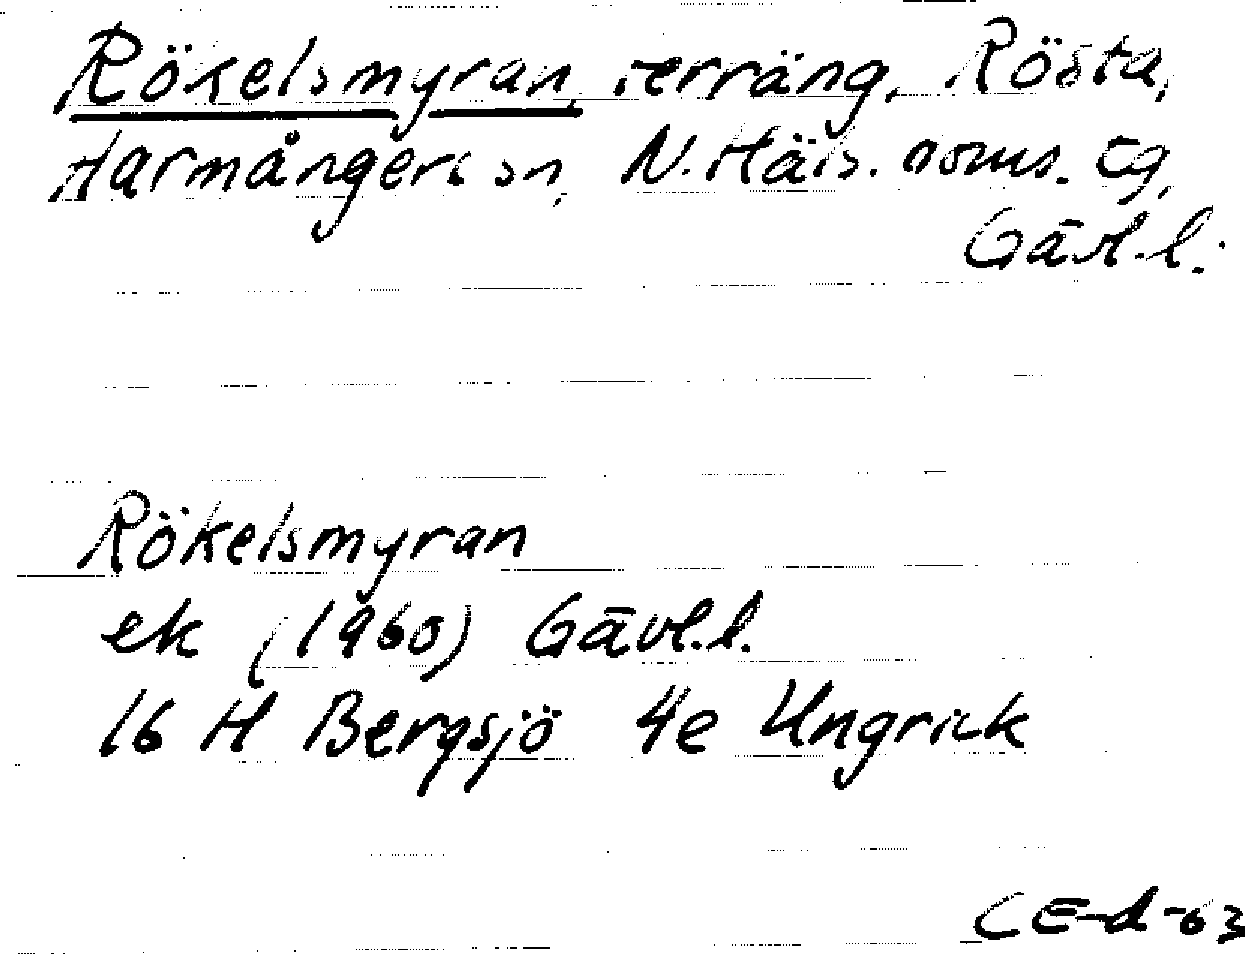 Rökelsmyran, terräng, Rösta,
Harmångers sn, N. Häls. doms. tg,
Gävl. l.
Rökelsmyran
ek (1960) Gävl. l.
16 H Bergsjö 4e Ungrick
CE-d-63